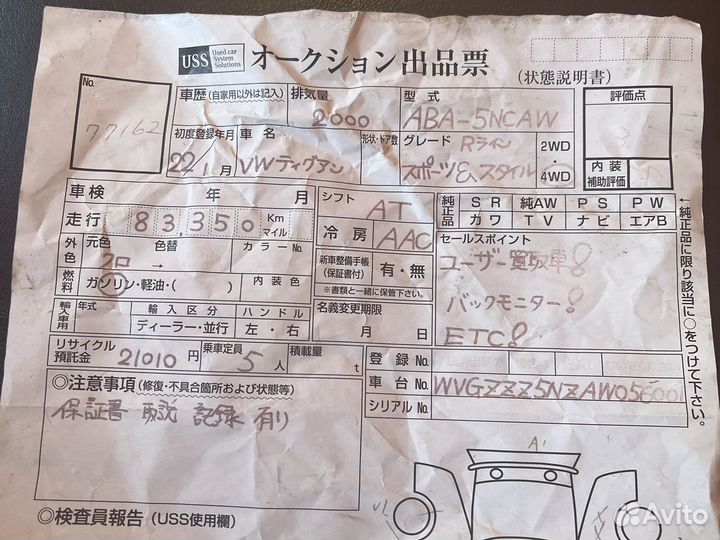 USS Used car System Solutions オークション出品票
(状態説明書)
No. 77162
車歴 (自家用以外は記入) 排気量 2000
型式 ABA-5NCAW
評価点
初度登録年月 22年1月
車名 VWティグアン
形状・ドア数
グレード Rライン スポーツ&スタイル
2WD
4WD
内装
補助評価
車検 年 月
シフト AT
純正品 SR 純AW PS PW
カワ TV ナビ エアB
走行 83,350 Km マイル
冷房 AAC
セールスポイント
外色 元色 色替 カラーNo.
→
ユーザー買取車!
新車整備手帳(保証書付) 有・無
※書類と一緒に保管下さい。
燃料 ガソリン・軽油・( ) 内装色
バックモニター!
輸入車用 年式 輸入区分 ハンドル
ディーラー・並行 左・右
名義変更期限
月 日
ETC!
←純正品に限り該当に○をつけて下さい。
リサイクル預託金 21010円
乗車定員 5人
積載量 t
登録No.
車台No. WVGZZZ5NZAW056001
シリアルNo.
◎注意事項 (修復・不具合箇所および状態等)
保証書 取説 記録 有り
A1
◎検査員報告 (USS使用欄)
Avito